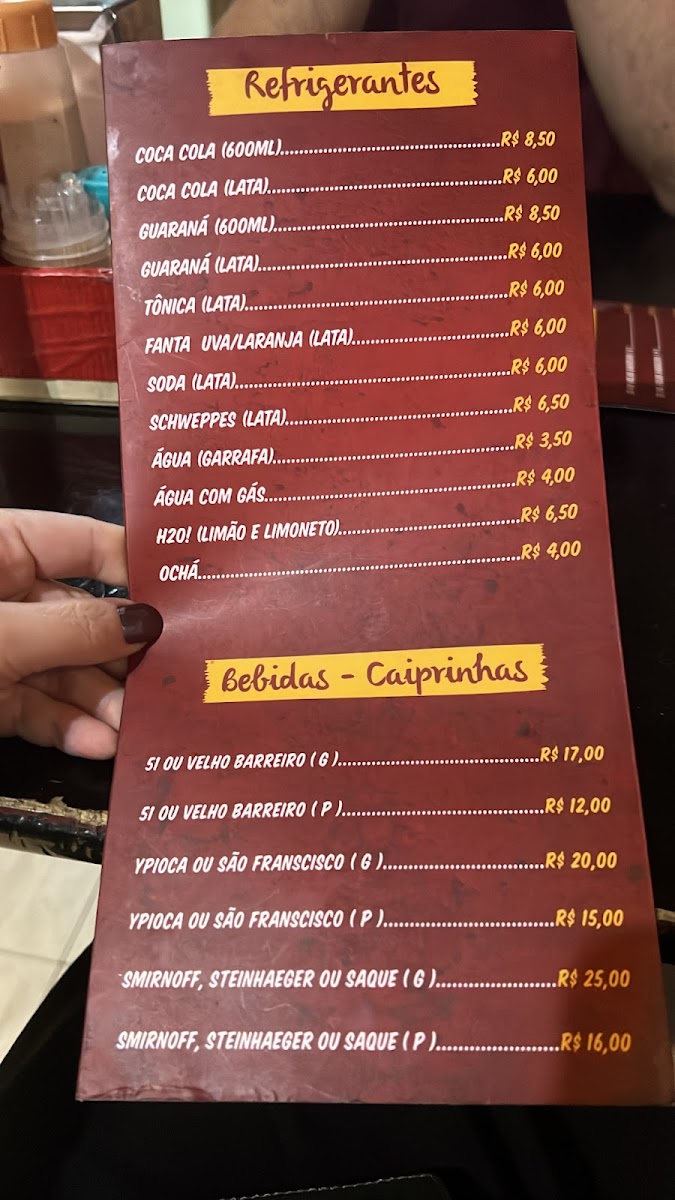 Refrigerantes
COCA COLA (600ML)..........R$ 8,50
COCA COLA (LATA)..........R$ 6,00
GUARANÁ (600ML)..........R$ 8,50
GUARANÁ (LATA)..........R$ 6,00
TÔNICA (LATA)..........R$ 6,00
FANTA UVA/LARANJA (LATA)..........R$ 6,00
SODA (LATA)..........R$ 6,00
SCHWEPPES (LATA)..........R$ 6,50
ÁGUA (GARRAFA)..........R$ 3,50
ÁGUA COM GÁS..........R$ 4,00
H2O! (LIMÃO E LIMONETO)..........R$ 6,50
OCHÁ..........R$ 4,00
Bebidas - Caiprinhas
51 OU VELHO BARREIRO ( G )..........R$ 17,00
51 OU VELHO BARREIRO ( P )..........R$ 12,00
YPIOCA OU SÃO FRANSCISCO ( G )..........R$ 20,00
YPIOCA OU SÃO FRANSCISCO ( P )..........R$ 15,00
SMIRNOFF, STEINHAEGER OU SAQUE ( G )..........R$ 25,00
SMIRNOFF, STEINHAEGER OU SAQUE ( P )..........R$ 16,00